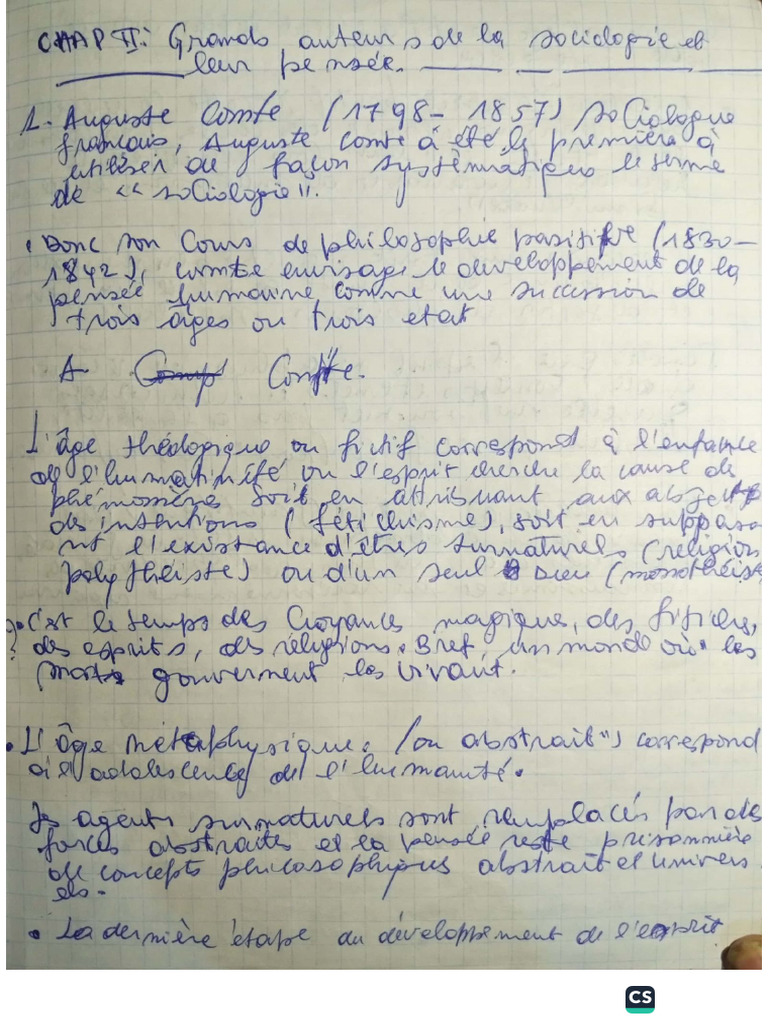 CHAP II: Grands auteurs de la sociologie et
leur pensée.
1. Auguste Comte (1798-1857) sociologue
français, Auguste comte à été le première à
utiliser de façon systématique le terme
de << sociologie".
• Donc son Cours de philosophie positive (1830-
1842), comte envisage le développement de la
pensée humaine comme une succession de
trois âges ou trois etat
A Comte.
L'âge théologique ou fictif correspond à l'enfance
de l'humatinité ou l'esprit cherche la cause de
phénomènes soit en attribuant aux objets
des intentions (fétichisme), soit en supposa
nt l'existance d'êtres surnaturels (religion
polythéiste) ou d'un seul Dieu (monothéiste
• C'est le temps des Croyances magique, des
des esprits, des réligions. Bref, un monde où les
morts gouvernent les vivant.
• L'âge métaphysique. (ou abstrait") correspond
à l'adolescence de l'humanité.
agents surnaturels sont remplacés par des
forces abstraites et la pensée reste prisonnière
de concepts philosophiques abstrait et univers
els.
• La dernière étape du développement de l'esprit
CS